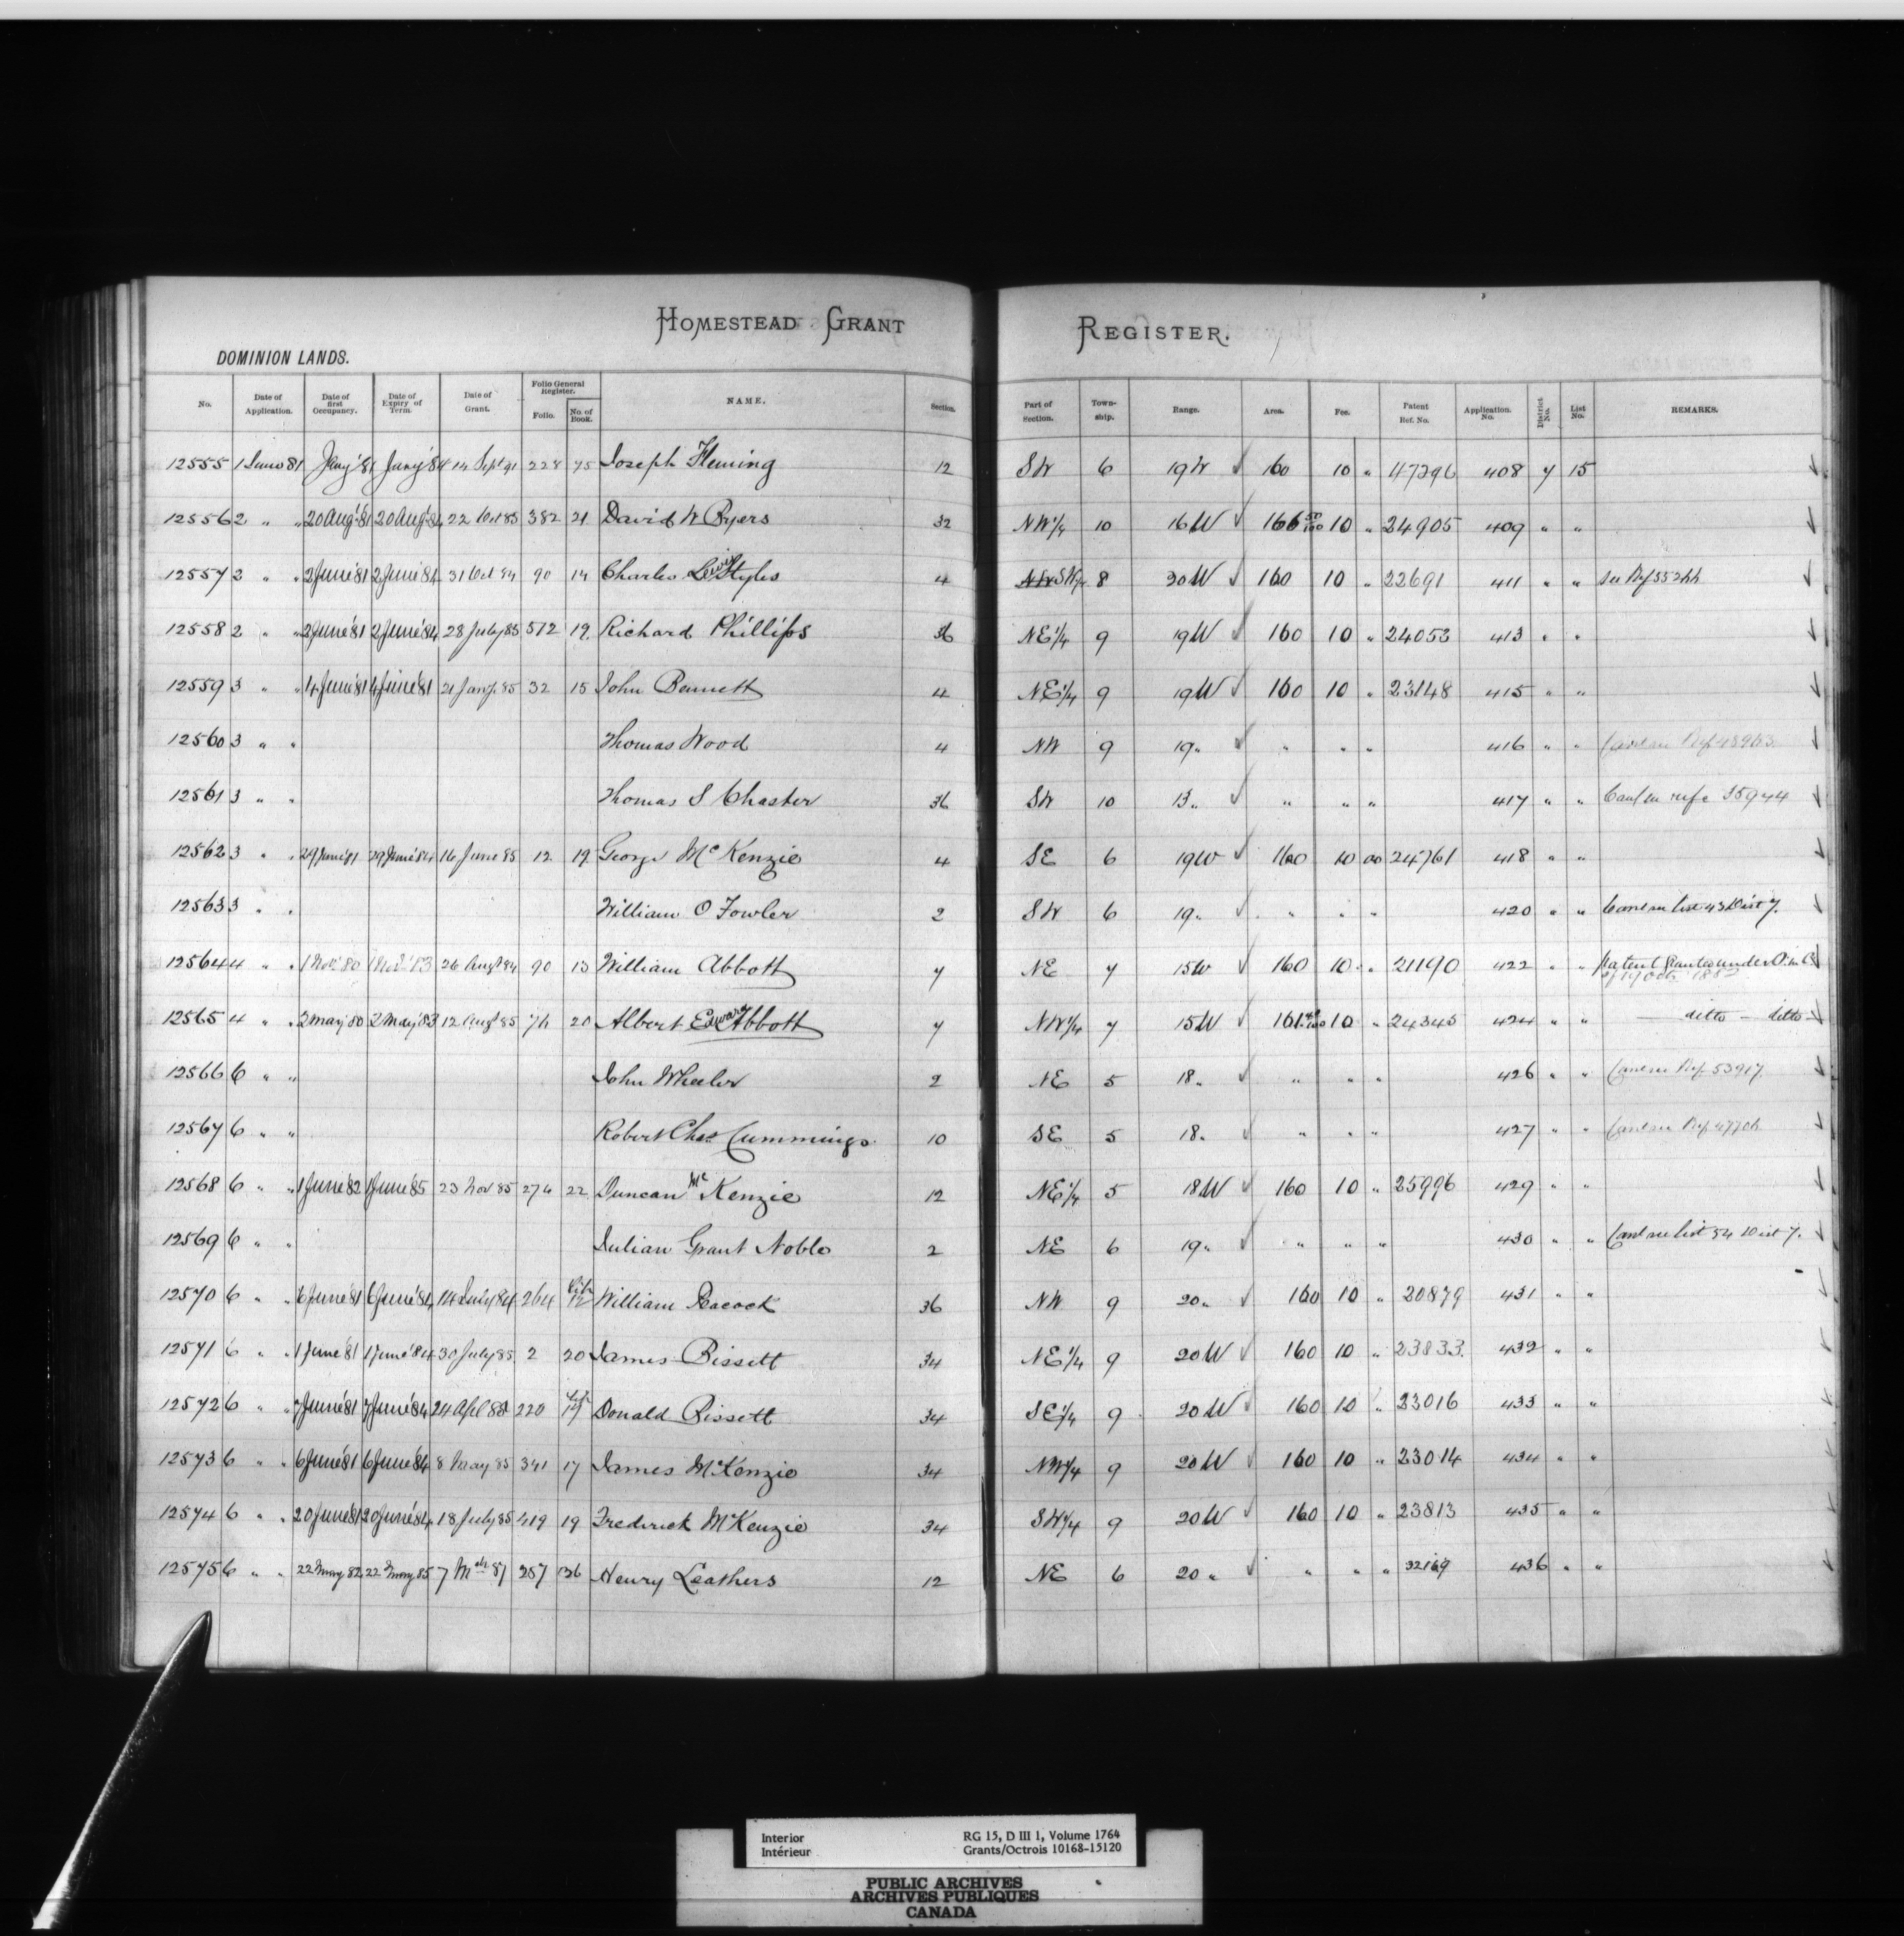 HOMESTEAD GRANT REGISTER.
DOMINION LANDS.
No. Date of Application. Date of first Occupancy. Date of Expiry of Term. Date of Grant. Folio General Register. Folio. No. of Book. NAME. Section. Part of Section. Town-ship. Range. Area. Fee. Patent Ref. No. Application No. District No. List No. REMARKS.
12555 1 June 81 Jany '81 Jany '84 14 Sept 91 228 75 Joseph Fleming 12 SW 6 19W 160 10 " 47296 408 7 15
12556 2 " " 20 Aug '81 20 Aug '84 22 Oct 85 382 21 David W Byers 32 NW 1/4 10 16W 166 50/100 10 " 24905 409 " "
12557 2 " " 2 June '81 2 June '84 31 Oct 84 90 14 Charles Lewis Styles 4 SW 8 20W 160 10 " 22691 411 " " see Ref
12558 2 " " 2 June '81 2 June '84 28 July 85 512 19 Richard Phillips 36 NE 1/4 9 19W 160 10 " 24053 413 " "
12559 3 " " 4 June '81 4 June '81 21 Jany 85 32 15 John Bennett 4 NE 1/4 9 19W 160 10 " 23148 415 " "
12560 3 " " Thomas Wood 4 NW 9 19 " " " " 416 " " Canl see Ref 48963
12561 3 " " Thomas S Chaster 36 SW 10 13 " " " " 417 " " Canl see refce 35944
12562 3 " " 29 June '81 29 June '84 16 June 85 12 19 George McKenzie 4 SE 6 19W 160 10 00 24761 418 " "
12563 3 " " William O Fowler 2 SW 6 19 " " " " 420 " " Canl see list 43 Dist 7.
12564 4 " " 1 Nov '80 1 Nov '83 26 Augt 84 90 13 William Abbott 7 NE 7 15W 160 10 " 21190 422 " " Patent granted under O. in C. of 19 Octr
12565 4 " " 2 May '80 2 May '83 12 Augt 85 76 20 Albert Edward Abbott 7 NW 1/4 7 15W 161 10 " 24345 424 " " — ditto — ditto —
12566 6 " " John Wheeler 2 NE 5 18 " " " " 426 " " Canl see Ref 53917.
12567 6 " " Robert Chas Cummings 10 SE 5 18 " " " " 427 " " Canl see Ref
12568 6 " " 1 June '82 1 June '85 23 Nov 85 274 22 Duncan McKenzie 12 NE 1/4 5 18W 160 10 " 25996 429 " "
12569 6 " " Julian Grant Noble 2 NE 6 19 " " " " 430 " " Canl see list 54 Dist 7.
12570 6 " " 6 June '81 6 June '84 14 July 84 264 Lib 12 William Peacock 36 NW 9 20 " 160 10 " 20879 431 " "
12571 6 " " 1 June '81 1 June '84 30 July 85 2 20 James Bissett 34 NE 1/4 9 20W 160 10 " 23833 432 " "
12572 6 " " 7 June '81 7 June '84 24 Apl 85 220 Lib 17 Donald Bissett 34 SE 1/4 9 20W 160 10 " 23016 433 " "
12573 6 " " 6 June '81 6 June '84 8 May 85 341 17 James McKenzie 34 NW 1/4 9 20W 160 10 " 23014 434 " "
12574 6 " " 20 June '81 20 June '84 18 July 85 419 19 Frederick McKenzie 34 SW 1/4 9 20W 160 10 " 23813 435 " "
12575 6 " " 22 May 82 22 May 85 7 Mch 87 257 Henry Leathers 12 NE 6 20 " " " " 32169 436 " "
Interior RG 15, D III 1, Volume 1764
Intérieur Grants/Octrois 10168-15120
PUBLIC ARCHIVES
ARCHIVES PUBLIQUES
CANADA